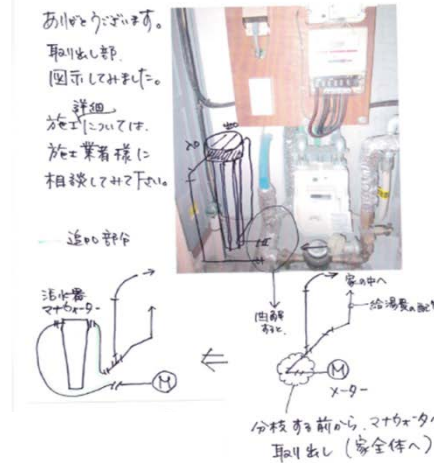 ありがとうございます。
取り出し部、
図示してみました。
詳細
施工については、
施工業者様に
相談してみて下さい。
追加部分
活水器
マナウォーター
M
図解
すると、
家の中へ
給湯費の配
M
メーター
分枝する前から、マナウォータ
取り出し(家全体へ)